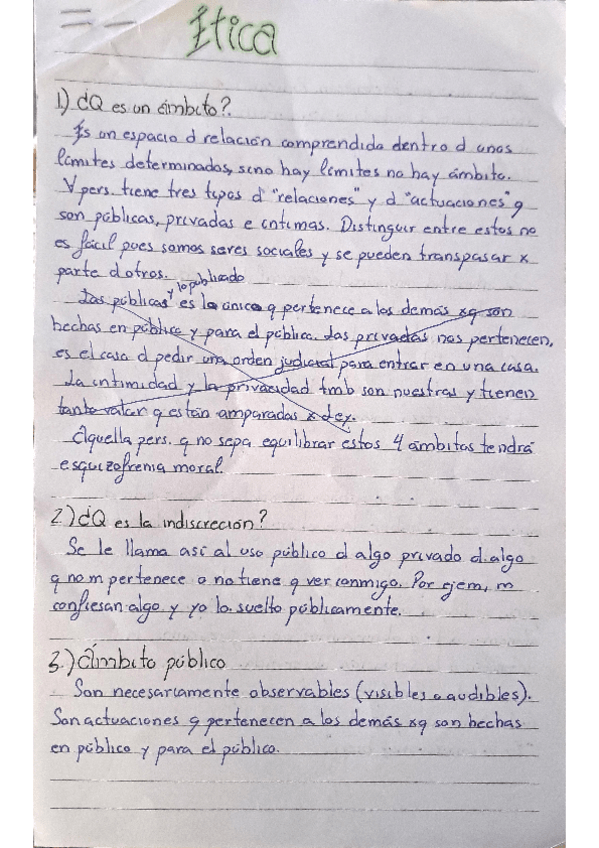 Ética
1) ¿Q es un ámbito?
Es un espacio d relación comprendida dentro d unos
límites determinados, si no hay límites no hay ámbito.
∀ pers. tiene tres tipos d "relaciones" y d "actuaciones" q
son públicas, privadas e íntimas. Distinguir entre estos no
es fácil pues somos seres sociales y se pueden transpasar x
parte d otros.
y lo publicado
Las públicas es lo único q pertenece a los demás xq son
hechas en público y para el público. Las privadas nos pertenecen,
es el caso d pedir una orden judicial para entrar en una casa.
La intimidad y la privacidad tmb son nuestras y tienen
tanto valor q están amparadas x ley.
Aquella pers. q no sepa equilibrar estos 4 ámbitos tendrá
esquizofrenia moral.
2) ¿Q es la indiscreción?
Se le llama así al uso público d algo privado d algo
q no m pertenece o no tiene q ver conmigo. Por ejem, m
confiesan algo y yo lo suelto públicamente.
3.) Ámbito público
Son necesariamente observables (visibles o audibles).
Son actuaciones q pertenecen a los demás xq son hechas
en público y para el público.